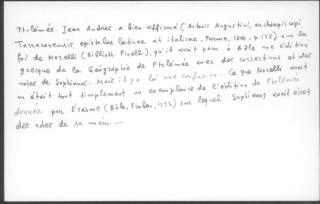 Ptolémée. Jean Andres a bien affirmé (Antonii Augustini, archiepiscopi
Tarraconensis epistolae latinae et italicae, Parme, 1804, p. ) sur la
foi de Morelli (Biblioth. Pinelli.), qu'il avait paru à Bâle une édition
grecque de la Géographie de Ptolémée avec des corrections et des
notes de Sophianos. Mais il y a là une confusion. Ce que Morelli avait
vu était tout simplement un exemplaire de l'édition de Ptolémée
donnée par Erasme (Bâle, Froben, 1533) sur lequel Sophianos avait écrit
des notes de sa main. —